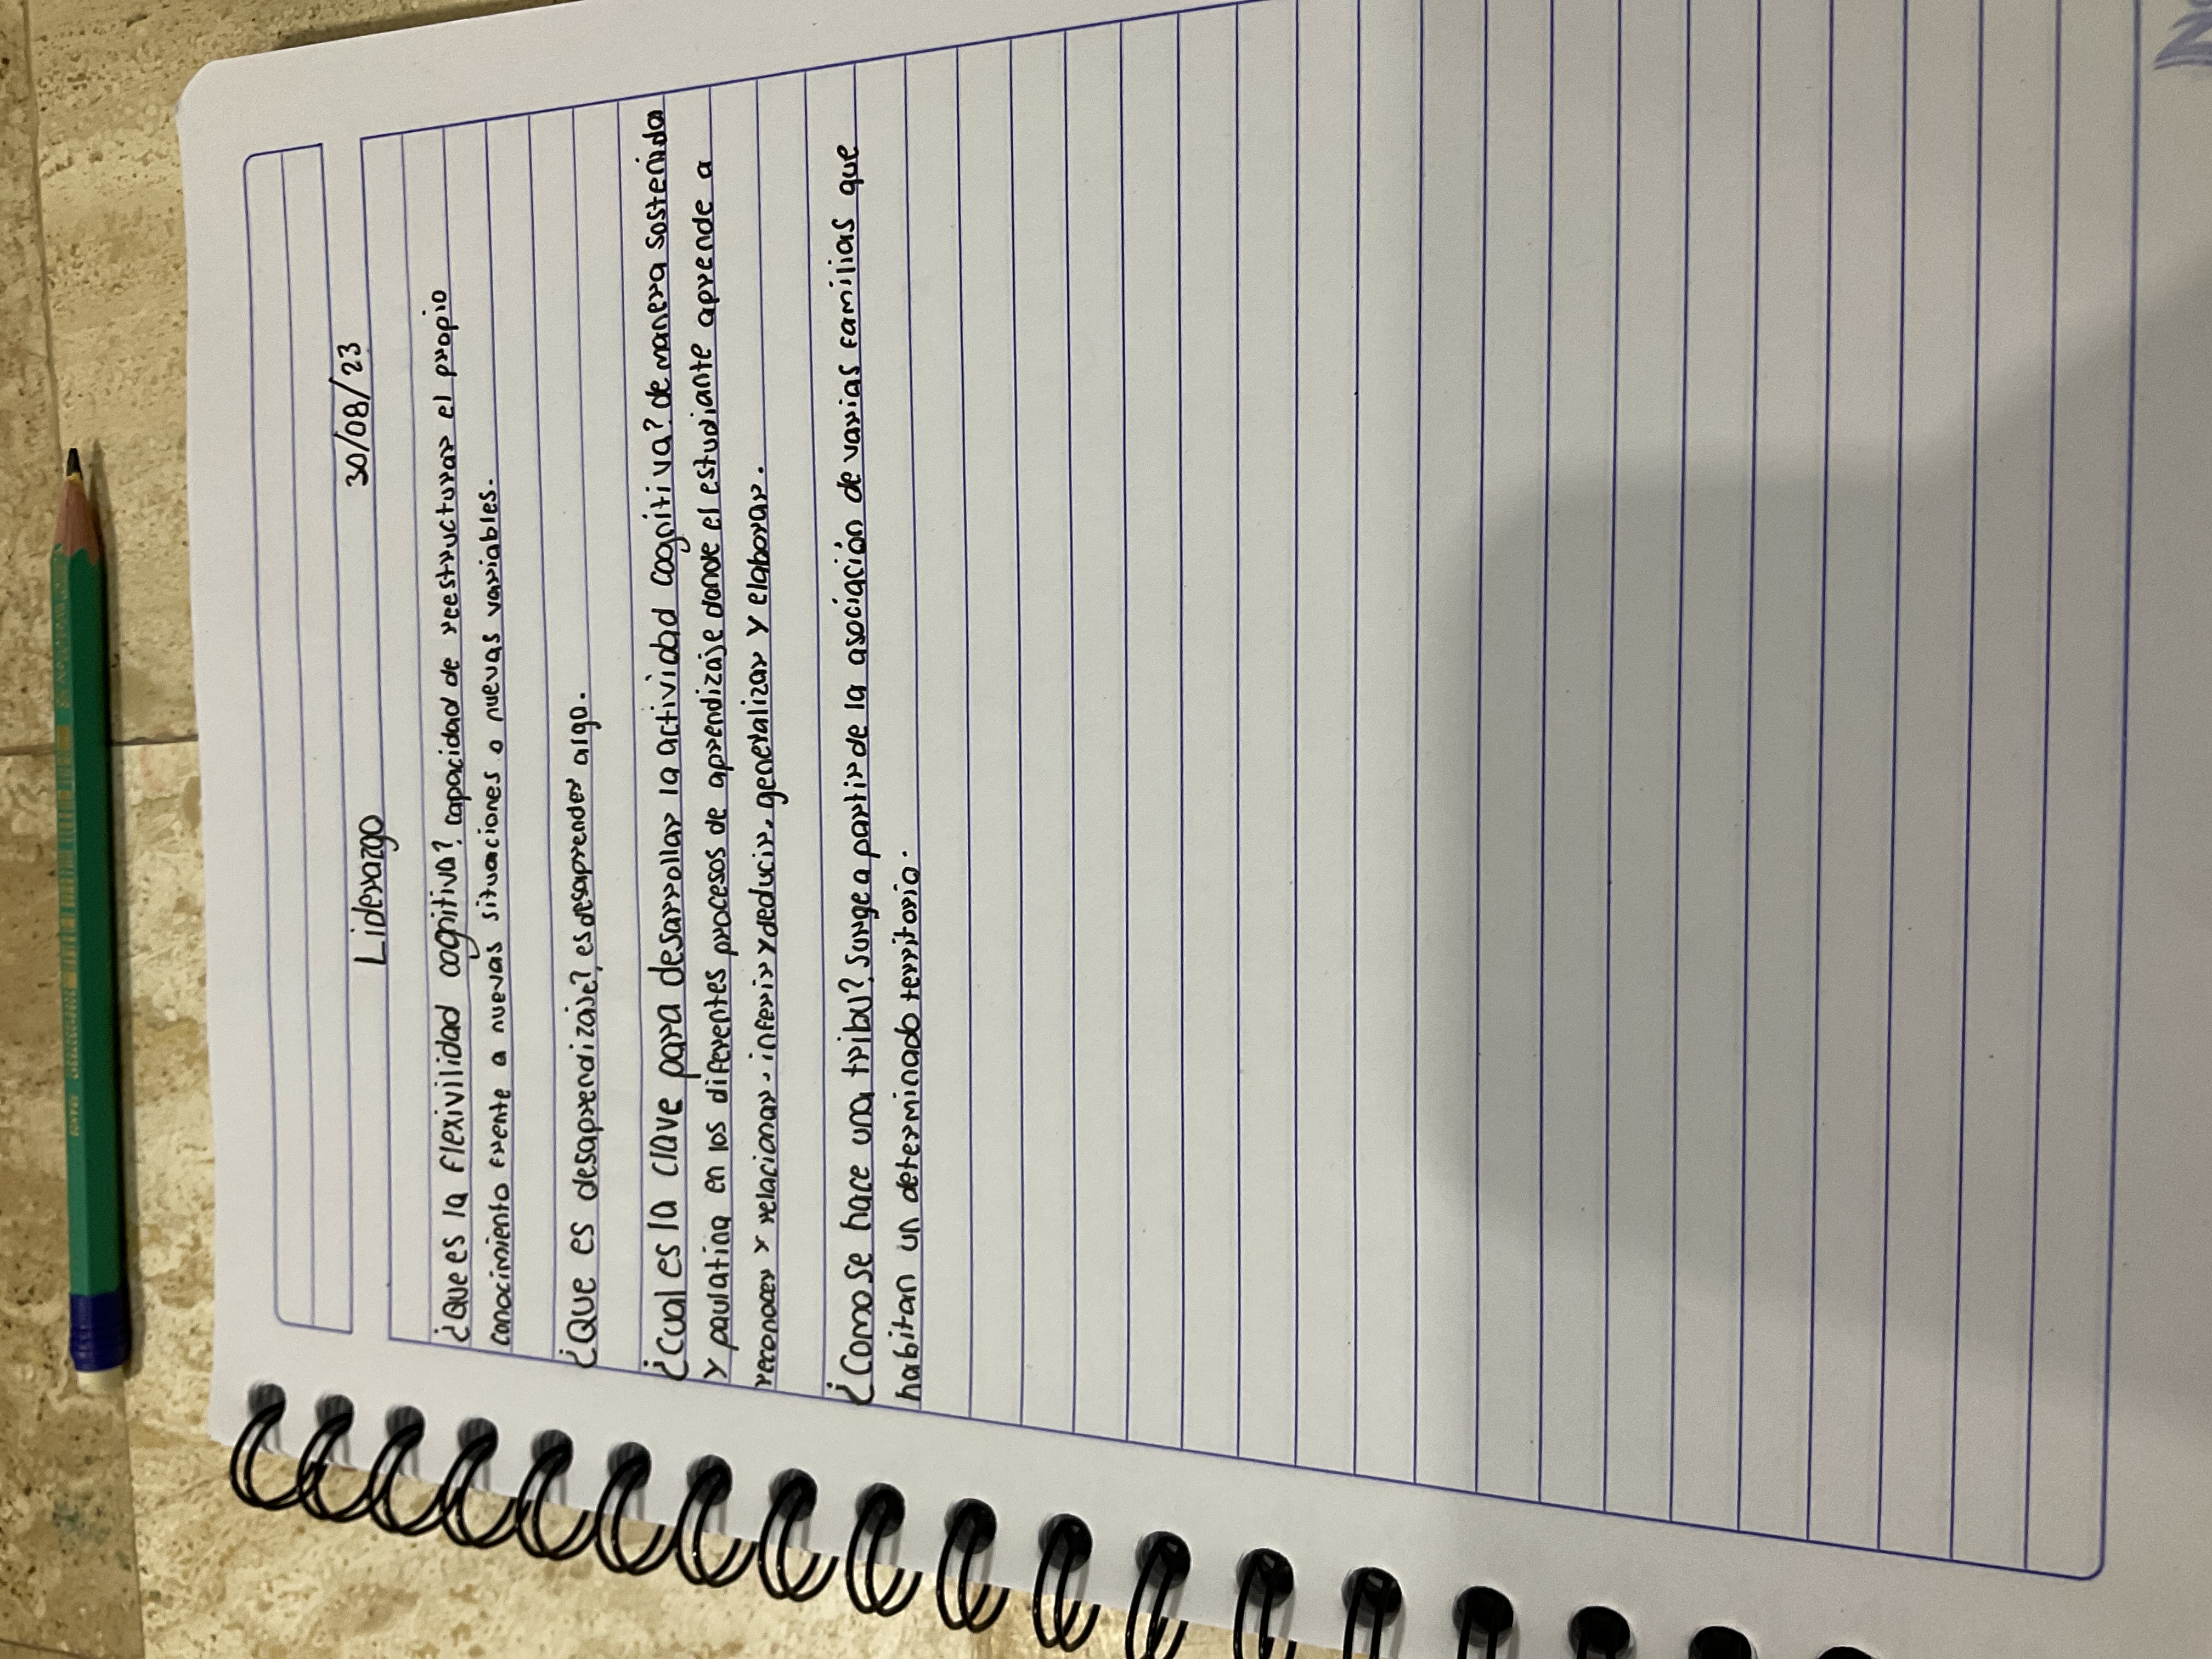 Liderazgo 30/08/23
¿Que es la flexivilidad cognitiva? capacidad de reestructurar el propio
conocimiento frente a nuevas situaciones o nuevas variables.
¿Que es desaprendizaje? es desaprender algo.
¿Cual es la clave para desarrollar la actividad cognitiva? de manera sostenida
y paulatina en los diferentes procesos de aprendizaje donde el estudiante aprende a
reconocer y relacionar, inferir y deducir, generalizar y elaborar.
¿Como se hace una tribu? Surge a partir de la asociación de varias familias que
habitan un determinado territorio.